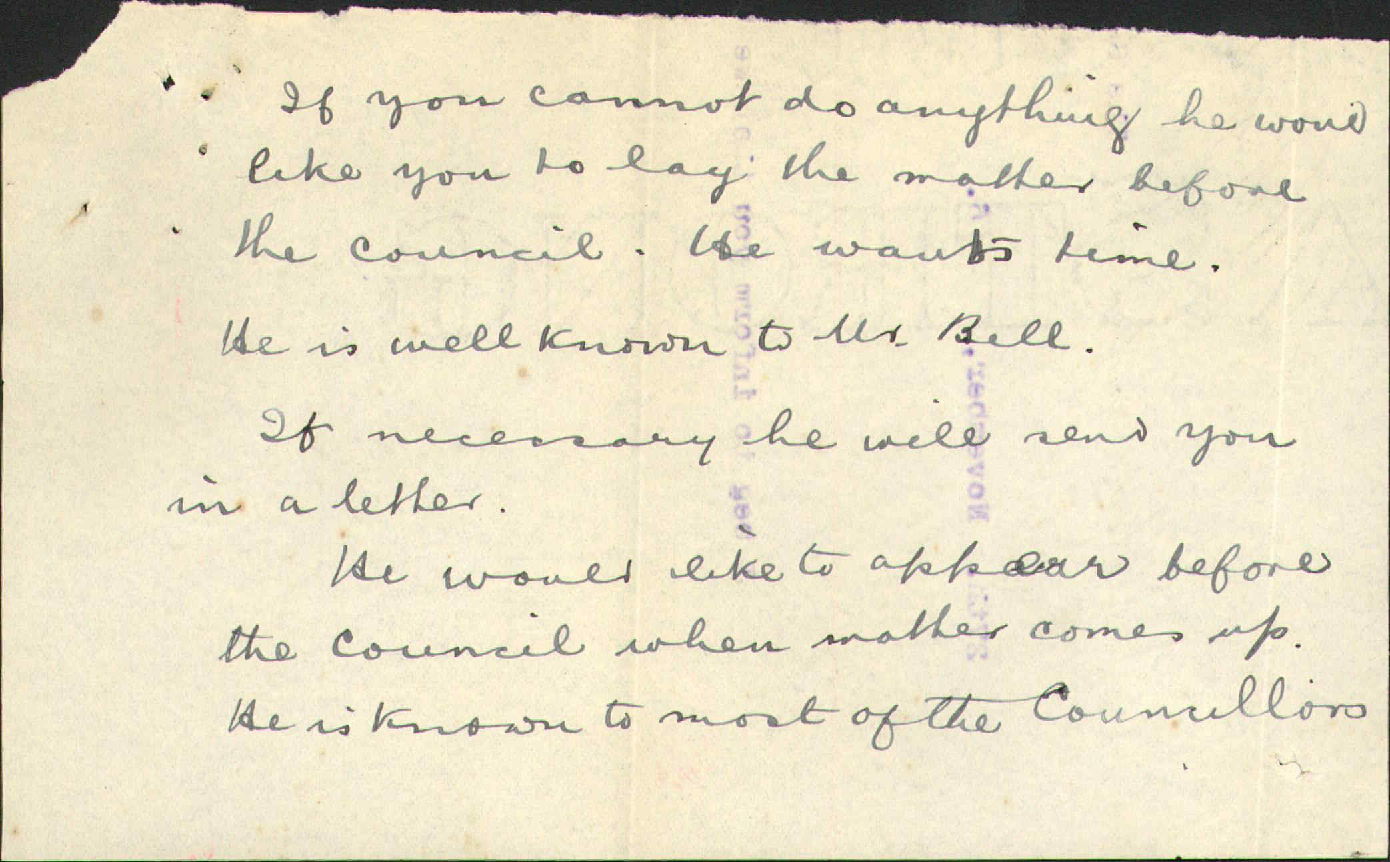 If you cannot do anything he would
like you to lay the matter before
the council. He wants time.
He is well known to Mr. Bell.
If necessary he will send you
in a letter.
He would like to appear before
the Council when matter comes up.
He is known to most of the Councillors